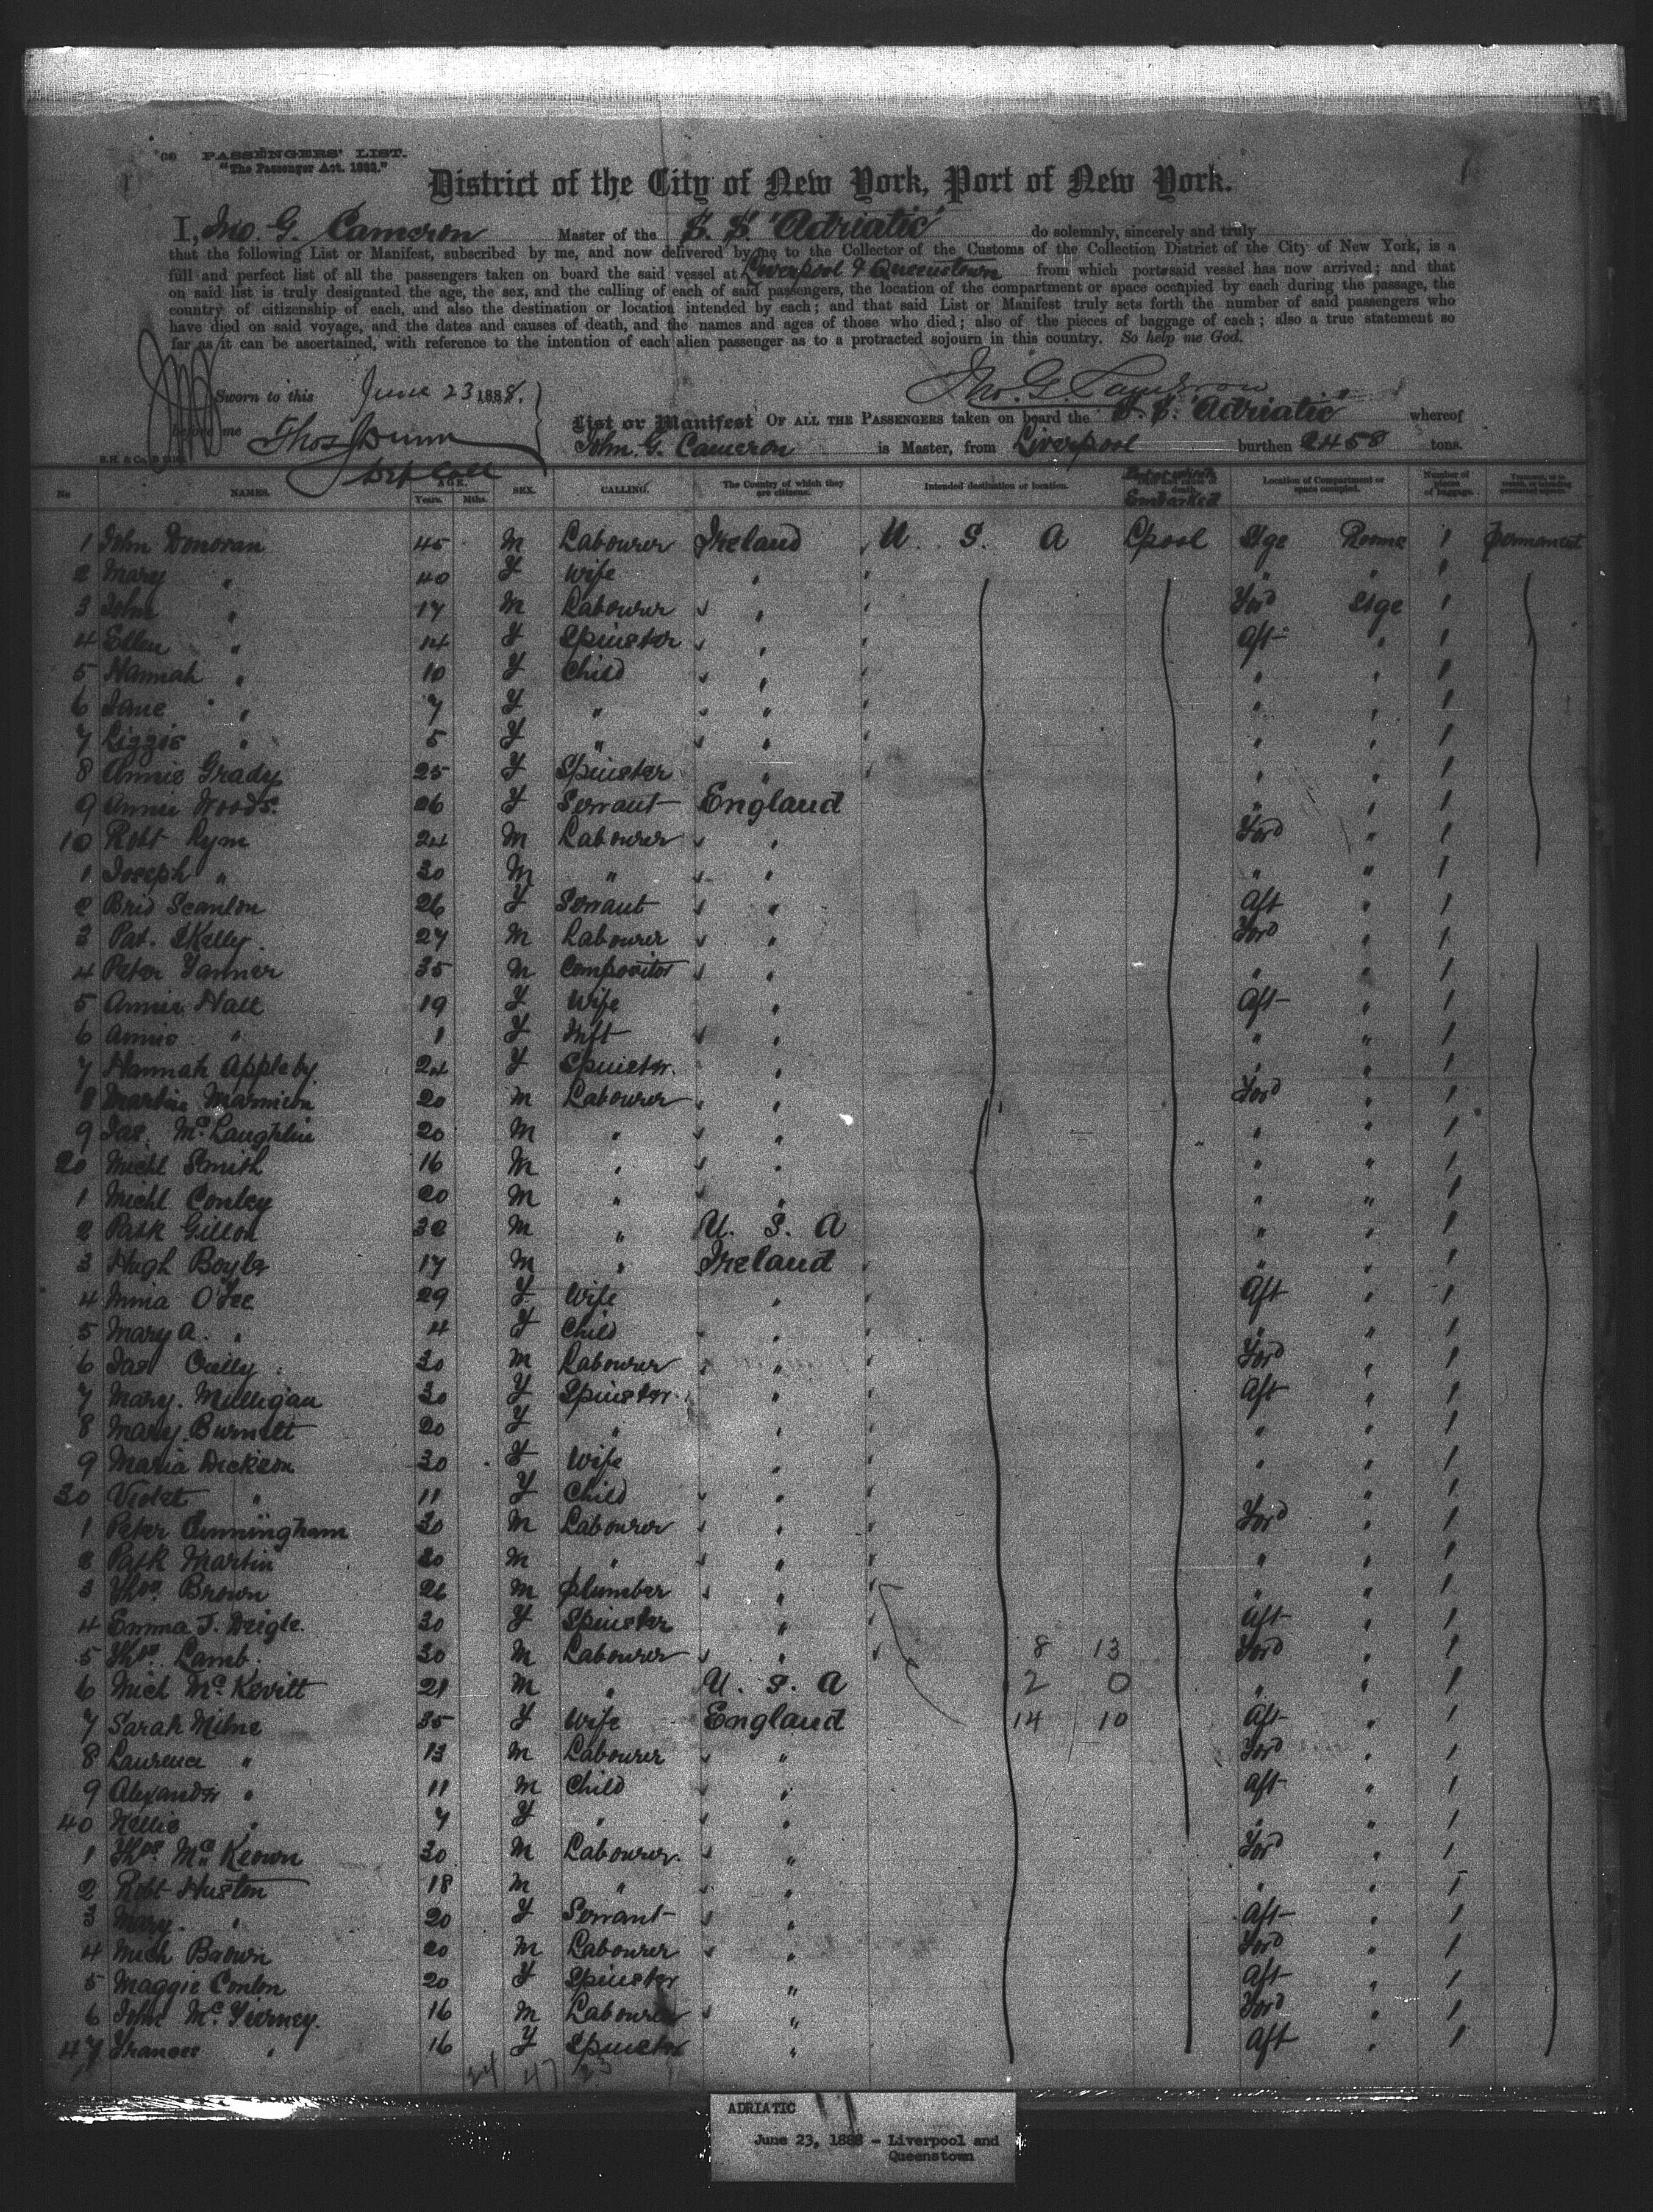 PASSENGERS' LIST.
"The Passenger Act. 1882."
District of the City of New York, Port of New York.
I, Jno. G. Cameron Master of the S. S. "Adriatic" do solemnly, sincerely and truly
that the following List or Manifest, subscribed by me, and now delivered by me to the Collector of the Customs of the Collection District of the City of New York, is a
full and perfect list of all the passengers taken on board the said vessel at Liverpool & Queenstown from which port said vessel has now arrived; and that
on said list is truly designated the age, the sex, and the calling of each of said passengers, the location of the compartment or space occupied by each during the passage, the
country of citizenship of each, and also the destination or location intended by each; and that said List or Manifest truly sets forth the number of said passengers who
have died on said voyage, and the dates and causes of death, and the names and ages of those who died; also of the pieces of baggage of each; also a true statement so
far as it can be ascertained, with reference to the intention of each alien passenger as to a protracted sojourn in this country. So help me God.
Jno. G. Cameron
Sworn to this June 23 1888.
before me Thos Dunn
List or Manifest OF ALL THE PASSENGERS taken on board the S. S. "Adriatic" whereof
John. G. Cameron is Master, from Liverpool burthen 2458 tons.
No NAMES. AGE. Years. Mths. SEX. CALLING. The Country of which they are citizens. Intended destination or location. Embarked Location of Compartment or space occupied. Number of pieces of baggage.
1 John Donovan 45 M Labourer Ireland U. S. A Lpool Stge Rooms 1 permanent
2 Mary " 40 F Wife " " " 1
3 John " 17 M Labourer " Ford Stge 1
4 Ellen " 14 F Spinster " Aft " 1
5 Hannah " 10 F Child " " " 1
6 Jane " 7 F " " " " 1
7 Lizzie " 5 F " " " " 1
8 Annie Grady 25 F Spinster " " " 1
9 Annie Woods. 26 F Servant England " " 1
10 Robt Rym 24 M Labourer " Ford " 1
1 Joseph " 30 M " " " " 1
2 Brid Scanlon 26 F Servant " Aft " 1
3 Pat. Skelly. 27 M Labourer " Ford " 1
4 Peter Fanner 35 M Compositor " " " 1
5 Annie Hall 19 F Wife " Aft " 1
6 Annie " 1 F Inft " " " 1
7 Hannah Appleby 24 F Spinster. " " " 1
8 Martin Marnion 20 M Labourer " Ford " 1
9 Jas. McLaughlin 20 M " " " " 1
20 Michl Smith 16 M " " " " 1
1 Michl Conley 20 M " " " " 1
2 Patk Gillon 32 M " U. S. A " " 1
3 Hugh Boyle 17 M " Ireland " " 1
4 Mina O'Fee 29 F Wife " Aft " 1
5 Mary A. " 4 F Child " " " 1
6 Jas Cully 30 M Labourer " Ford " 1
7 Mary. Mulligan 30 F Spinster. " Aft " 1
8 Mary. Burnett 20 F " " " " 1
9 Maria Dickson 30 F Wife " " " 1
30 Violet " 11 F Child " " " 1
1 Peter Cunningham 30 M Labourer " Ford " 1
2 Patk Martin 20 M " " " " 1
3 Thos. Brown 26 M Plumber " " " 1
4 Emma J. Deigle. 30 F Spinster " Aft " 1
5 Thos. Lamb. 30 M Labourer " 8 13 Ford " 1
6 Mich McKevitt 21 M " U. S. A 2 0 " " 1
7 Sarah Milne 35 F Wife England 14 10 Aft " 1
8 Laurence " 13 M Labourer " Ford " 1
9 Alexander " 11 M Child " Aft " 1
40 Nellie " 7 F " " " " 1
1 Thos. McKeown 30 M Labourer. " Ford " 1
2 Robt Huston 18 M " " " " 1
3 Mary. " 20 F Servant " Aft " 1
4 Mich Brown 20 M Labourer " Ford " 1
5 Maggie Conlon 20 F Spinster " Aft " 1
6 John McTierney. 16 M Labourer " Ford " 1
47 Frances " 16 F Spinster " Aft " 1
24 47 23
ADRIATIC
June 23, 1888 - Liverpool and
Queenstown